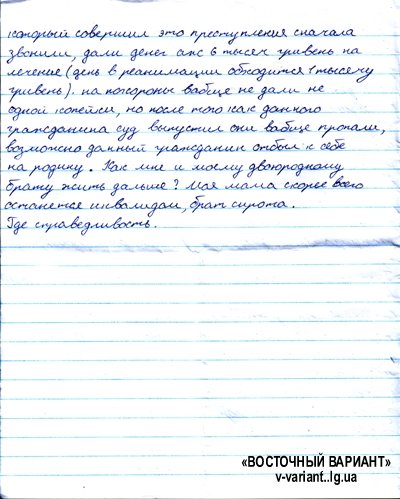 который совершил это преступления сначала
звонили, дали денег аж 6 тысяч гривень на
лечение (день в реанимации обходится 1 тысячу
гривень). на похороны вабще не дали не
одной копейки, но после того как данного
гражданина суд выпустил они вабще пропали,
возможно данный гражданин отбыл к себе
на родину. Как мне и моему двоюродному
брату жить дальше? Моя мама скорее всего
останется инвалидом, брат сирота.
Где справедливость.
«ВОСТОЧНЫЙ ВАРИАНТ»
v-variant.lg.ua